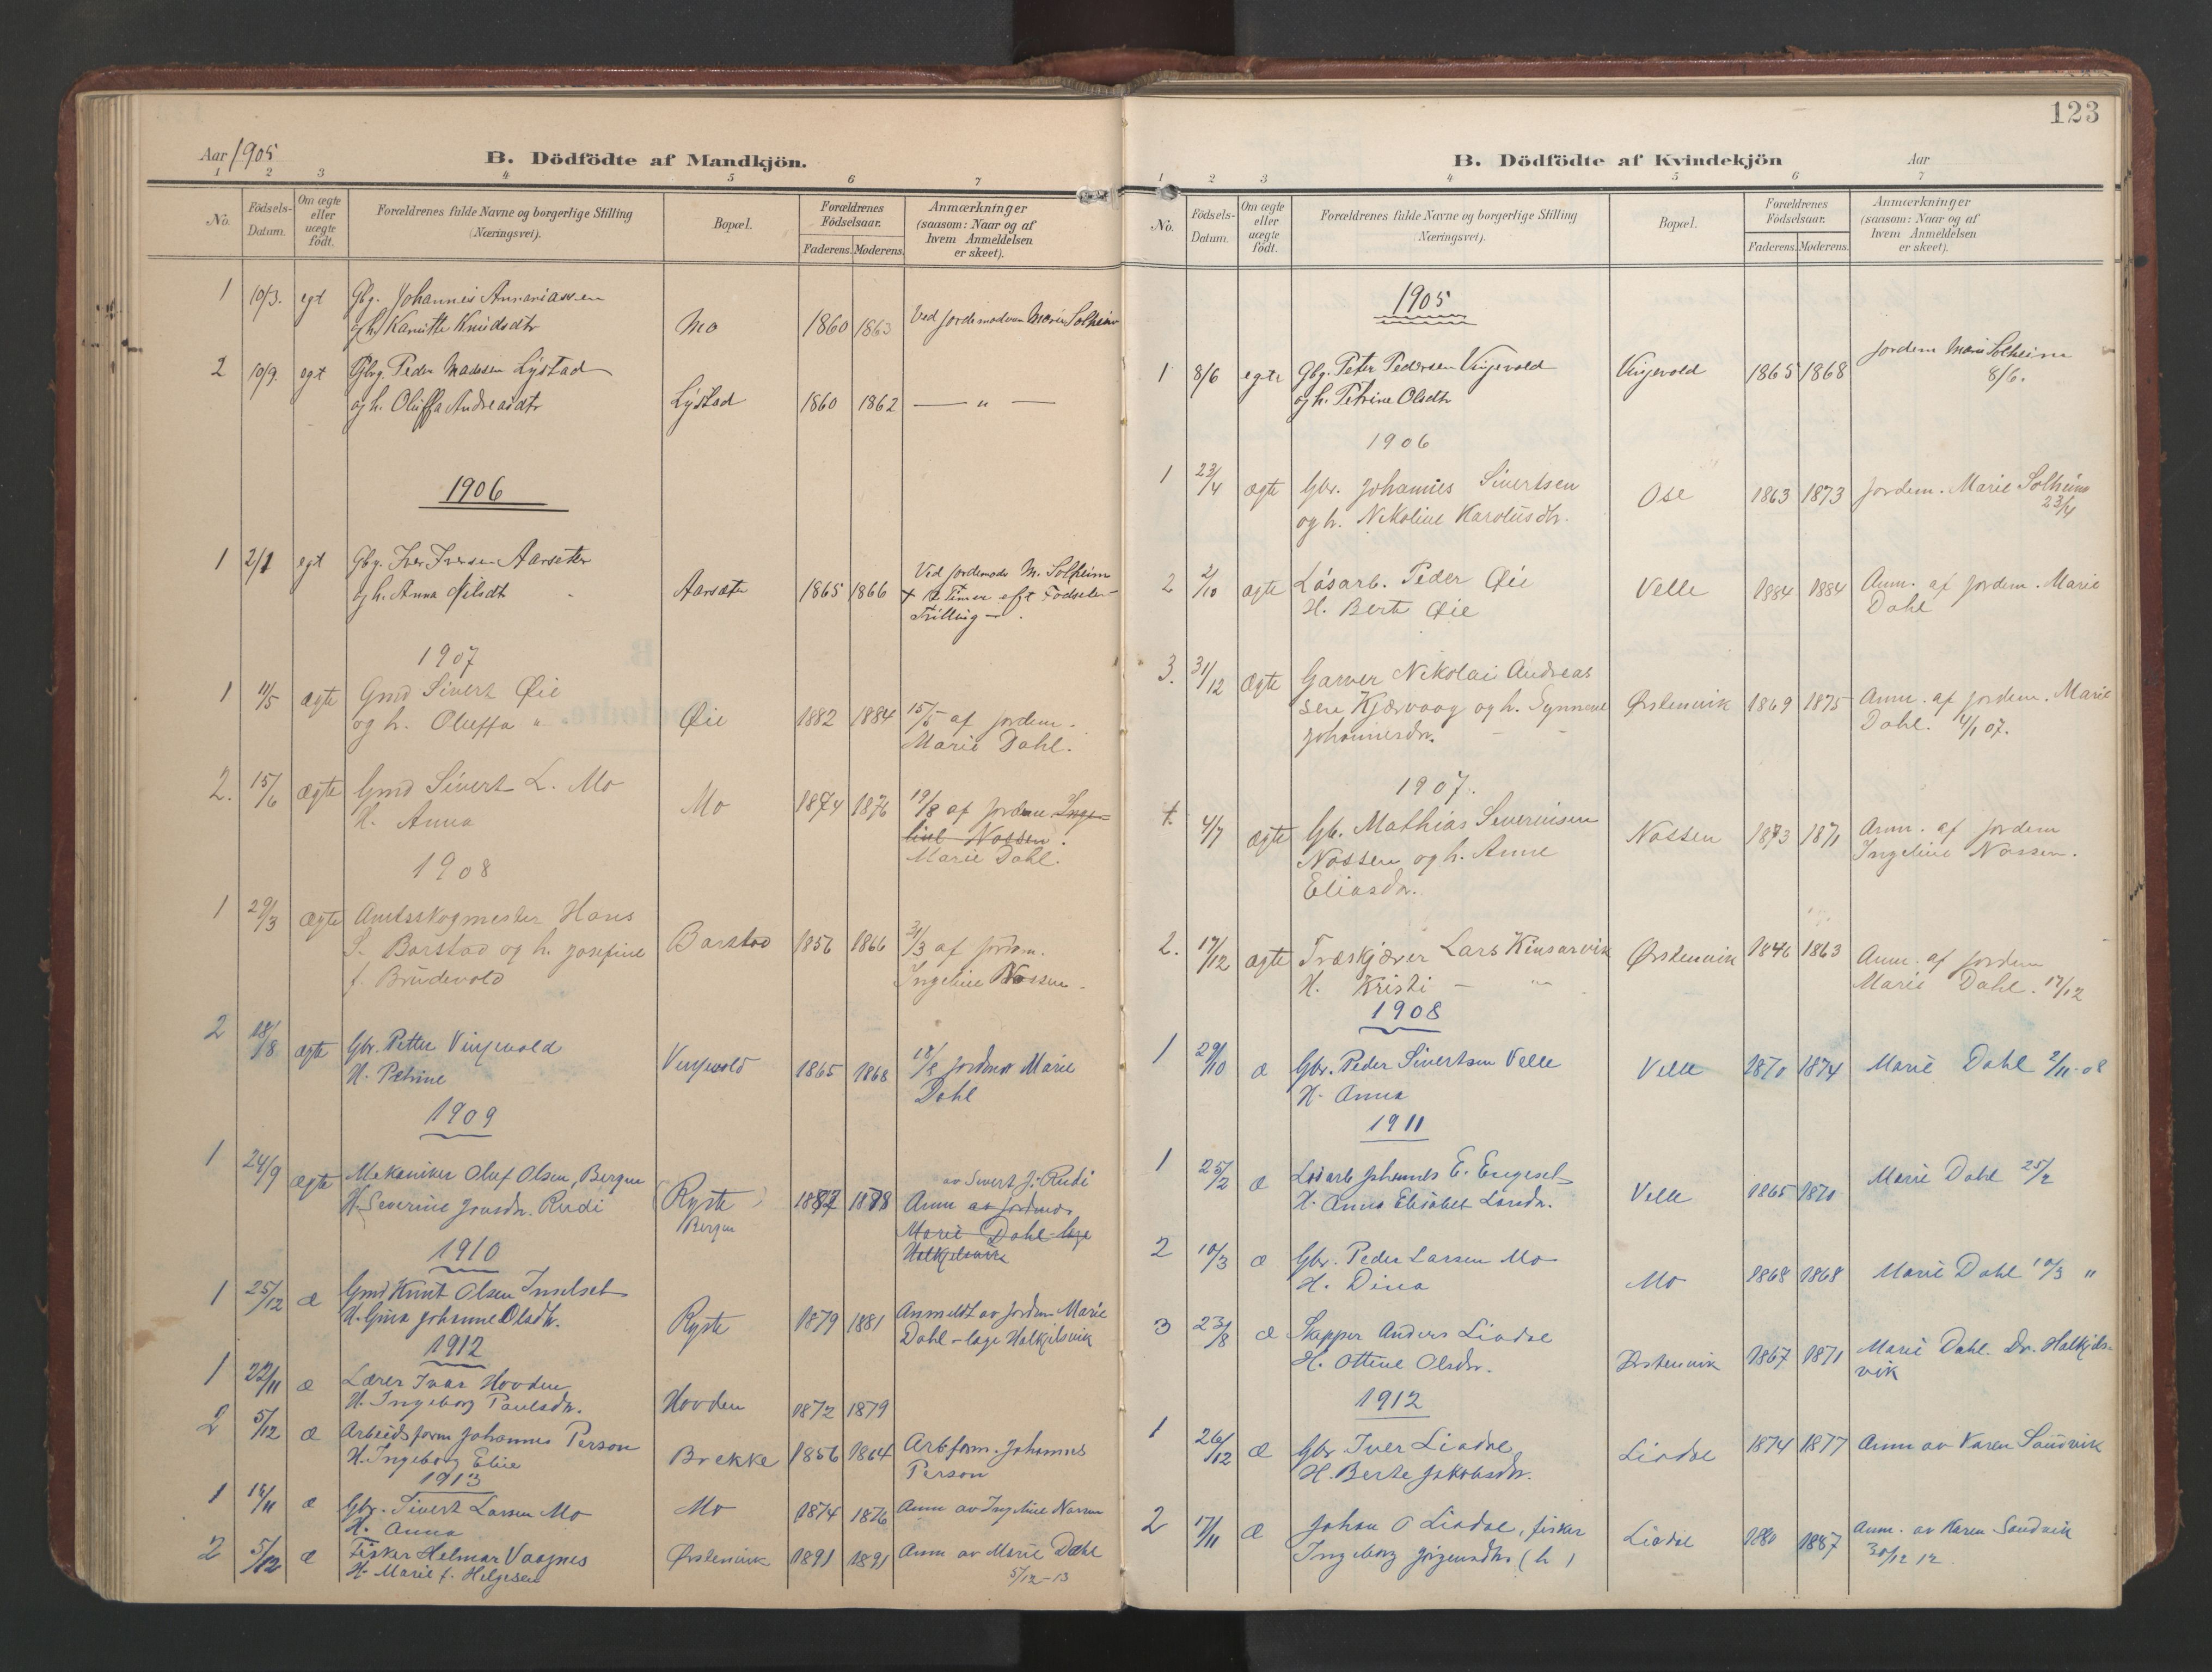 Aar 1905
B. Dödfödte af Mandkjön.
1 2 3 4 5 6 7
No.
Födsels-Datum.
Om ægte eller uægte födt.
Forældrenes fulde Navne og borgerlige Stilling
(Næringsvei).
Bopæl.
Forældrenes Födselsaar.
Faderens. Moderens.
Anmærkninger
(saasom: Naar og af
hvem Anmeldelsen
er skeet).
1 10/3. egt Gbg. Johannes Annaniassen
og h. Kanutte Knudsdtr Mo 1860 1863 Ved Jordemoderen Marie Solheim
2 10/9. egt Gbrg. Peder Madssen Lystad
og h. Oluffa Andreasdtr Lystad 1860 1862 — " —
1906
1 2/1 egt Gbg. Iver Iversen Aarsæter
og h. Anna Nilsdt Aarsæte 1865 1866 Ved Jordemoder M. Solheim
+ Timer eft Fødselen
Trilling —
1907
1 11/5 ægte Gmd Sivert Øie
og h. Oluffa " Øie 1882 1884 15/5 af jordem.
Marie Dahl.
2. 15/6 ægte Gmd Sivert L. Mo
H. Anna Mo 1874 1876 19/8 af jordem Inge-
line Nossen.
Marie Dahl.
1908
1 29/3 ægte Amtsskogmester Hans
S. Barstad og h. Josefine
f. Brudevold Barstad 1856 1866 31/3 af jordem.
Ingeline Nossen.
2 18/8 ægte Gbr. Petter Vinjevold
H. Petrine Vinjevold 1865 1868 18/8 Jordem Marie
Dahl
1909
1 24/9 ægte Mekaniker Oluf Olsen, Bergen
H. Severine Jonsdr. Rudi (Ryste)
Bergen 1887 1878 av Sivert J. Rudi
Anm av Jordmor
Marie Dahl - læge
Halkjelsvik
1910
1 25/12 æ Gmd Knut Olsen Inselset
H. Gina Johanne Olsdtr. Ryste 1879 1881 Anmeldt av Jordm Marie
Dahl - læge Halkjelsvik
1912
1 22/11 æ Lærer Ivar Hovden
H. Ingeborg Paulsdr. Hovden 1872 1879
2 5/12 æ Arbeidsform Johannes Person
H. Ingeborg Elise Brekke 1856 1864 Arb form. Johannes
Person
1913
1 Gbr. Sivert Larsen Mo
H. Anna Mo 1874 1876 Anm av Ingeline Nossen
2 5/12 æ Fisker Helmar Vaagnes
H. Marie f. Helgesen Ørstenvik 1891 1891 Anm av Marie Dahl
5/12-13
123
B. Dödfödte af Kvindekjön
Aar
1 2 3 4 5 6 7
No.
Födsels-Datum.
Om ægte eller uægte födt.
Forældrenes fulde Navne og borgerlige Stilling
(Næringsvei).
Bopæl.
Forældrenes Födselsaar.
Faderens. Moderens.
Anmærkninger
(saasom: Naar og af
hvem Anmeldelsen
er skeet).
1905
1 8/6 egte Gbg. Peter Pedersen Vinjevold
og h. Petrine Olsdtr Vinjevold 1865 1868 Jordem Marie Solheim
8/6.
1906
1 23/4 ægte Gbr. Johannes Sivertsen
og h. Nikoline Karolusdtr. Ose 1863 1873 Jordem. Marie Solheim
23/4
2 2/10 ægte Løsarb. Peder Øie
H. Berte Øie Velle 1884 1884 Anm. af jordem. Marie
Dahl
3. 31/12 ægte Garver Nikolai Andreas
sen Kjærvaag og h. Synneve
Johannesdr. Ørstenvik 1869 1875 Anm. af jordem. Marie
Dahl. 4/1 07.
1907.
1. 4/7 ægte Gb. Mathias Severinsen
Nossen og h. Anne
Eliasdr. Nossen 1873 1871 Anm. af jordem
Ingeline Nossen.
2. 17/12 ægte Træskjærer Lars Kinsarvik
H. Kristi — " Ørstenvik 1846 1863 Anm. af jordem
Marie Dahl. 17/12
1908
1 29/10 æ Gbr. Peder Sivertsen Velle
H. Anna Velle 1870 1874 Marie Dahl 2/11-08
1911
1 25/2 æ Løsarb Johannes E. Engeset
H. Anna Elisabet Larsdr. Velle 1865 1870 Marie Dahl 25/2
2 10/3 æ Gbr. Peder Larsen Mo
H. Dina Mo 1868 1868 Marie Dahl 10/3 "
3 23/8 æ Skipper Anders Liadal
H. Ottine Olsdr. Ørstenvik 1867 1871 Marie Dahl. Dr. Halkjels-
vik
1912
1 26/12 æ Gbr Iver Liadal
H. Berte Jakobsdr. Liadal 1874 1877 Anm av Karen Sandvik
2 17/11 æ Johan O Liadal, fisker
Ingeborg Jørgensdtr (h) Liadal 1880 1887 Anm. av Karen Sandvik
30/12 12.